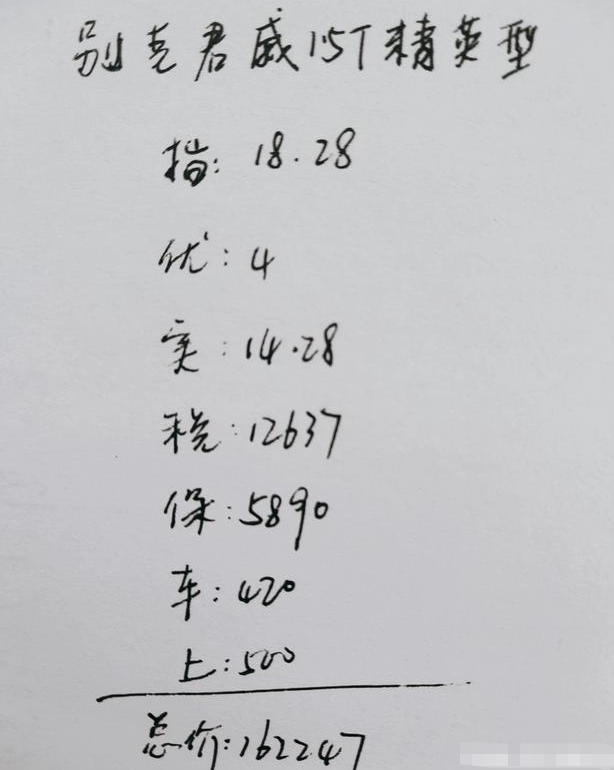 别克君威15T精英型
指: 18.28
优: 4
实: 14.28
税: 12637
保: 5890
车: 420
上: 500
总价: 162247